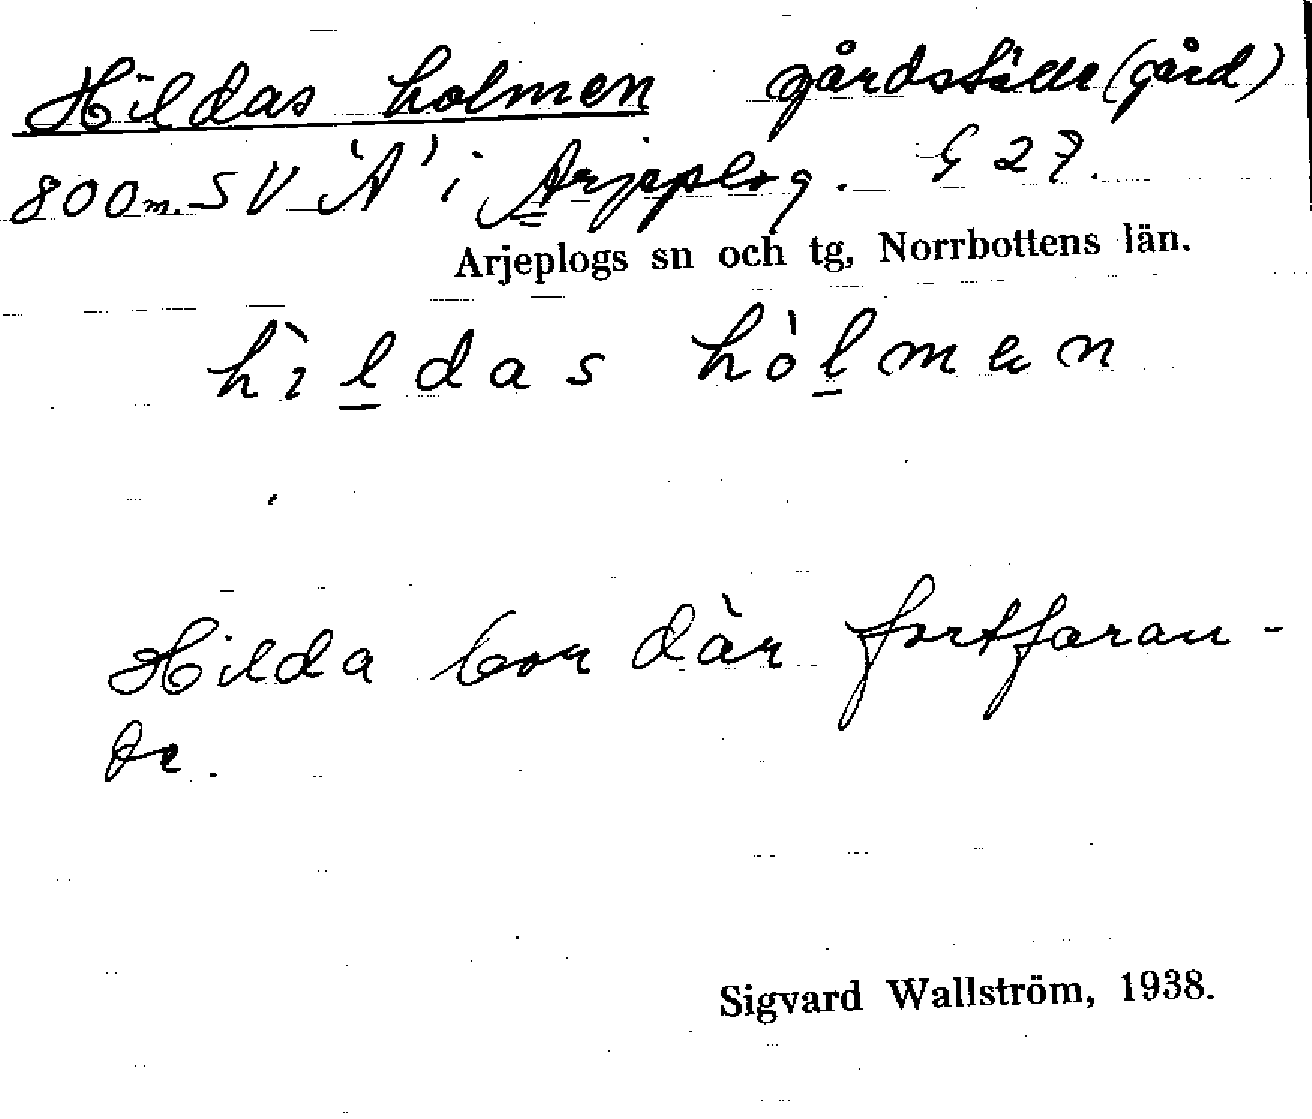 Hildas holmen gårdställe (gård)
800 m. SV 'A' i Arjeplog. G 27.
Arjeplogs sn och tg, Norrbottens län.
hìldas hòlmen
Hilda bor där fortfaran-
de.
Sigvard Wallström, 1938.